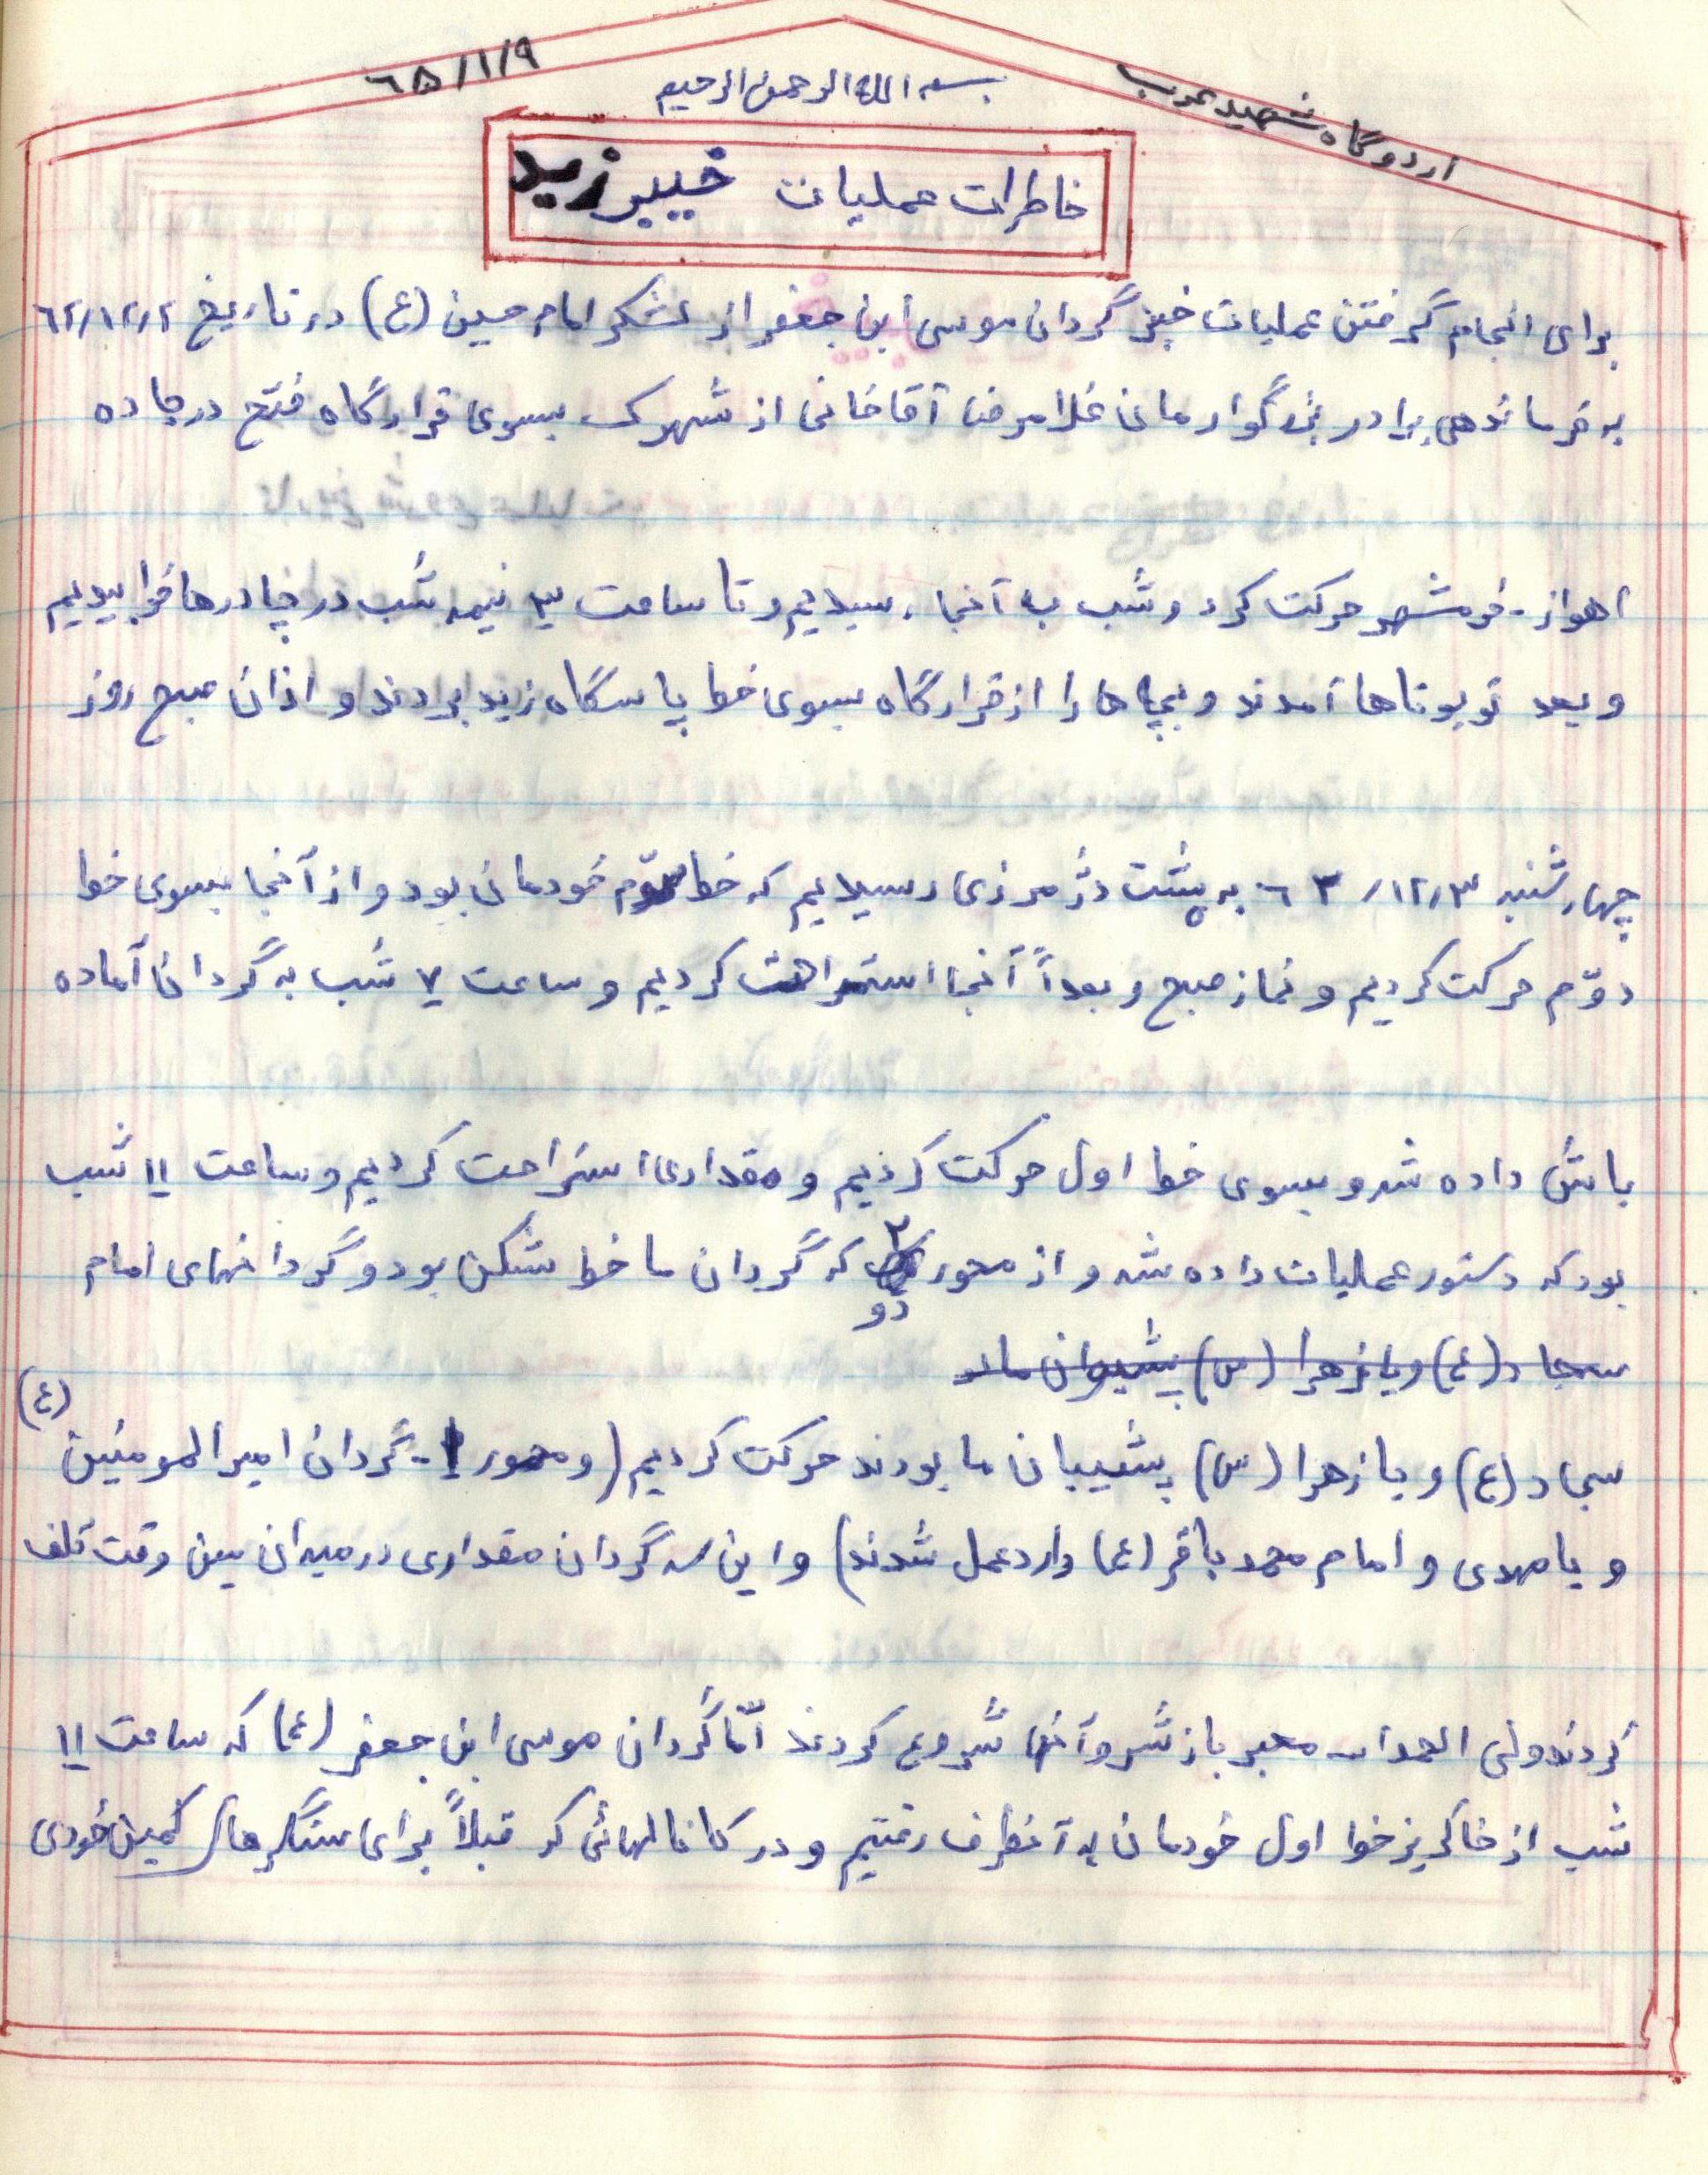 اردوگاه شهید عرب
٦٥/١/٩
بسم الله الرحمن الرحیم
خاطرات عملیات خیبر زید
برای انجام گرفتن عملیات خیبر گردان موسی ابن جعفر از لشکر امام حسین (ع) در تاریخ ٦٢/١٢/٢
به فرماندهی برادر بزرگوارمان غلامرضا آقاخانی از شهرک بسوی قرارگاه فتح در جاده
اهواز - خرمشهر حرکت کرد و شب به آنجا رسیدیم و تا ساعت ٣ نیمه شب در چادرها خوابیدیم
و بعد تویوتاها آمدند و بچه ها را از قرارگاه بسوی خط پاسگاه زید بردند و اذان صبح روز
چهارشنبه ٦٣/١٢/٣ به پشت دژ مرزی رسیدیم که خط سوّم خودمان بود و از آنجا بسوی خط
دوّم حرکت کردیم و نماز صبح و بعداً آنجا استراحت کردیم و ساعت ٧ شب به گردان آماده
باش داده شد و بسوی خط اول حرکت کردیم و مقداری استراحت کردیم و ساعت ١١ شب
بود که دستور عملیات داده شد و از محور ٢ دو که گردان ما خط شکن بود و گردانهای امام
سجاد (ع) و یا زهرا (س) پشیبان ما بودند حرکت کردیم (و محور ١- گردان امیرالمومنین (ع)
و یا مهدی و امام محمد باقر (ع) وارد عمل شدند) و این سه گردان مقداری در میدان مین وقت تلف
کردند ولی الحمدالله معبر باز شد و آنها شروع کردند امّا گردان موسی ابن جعفر (ع) که ساعت ١١
شب از خاکریز خط اول خودمان به آنطرف رفتیم و در کانالهائی که قبلاً برای سنگرهای کمین خودی